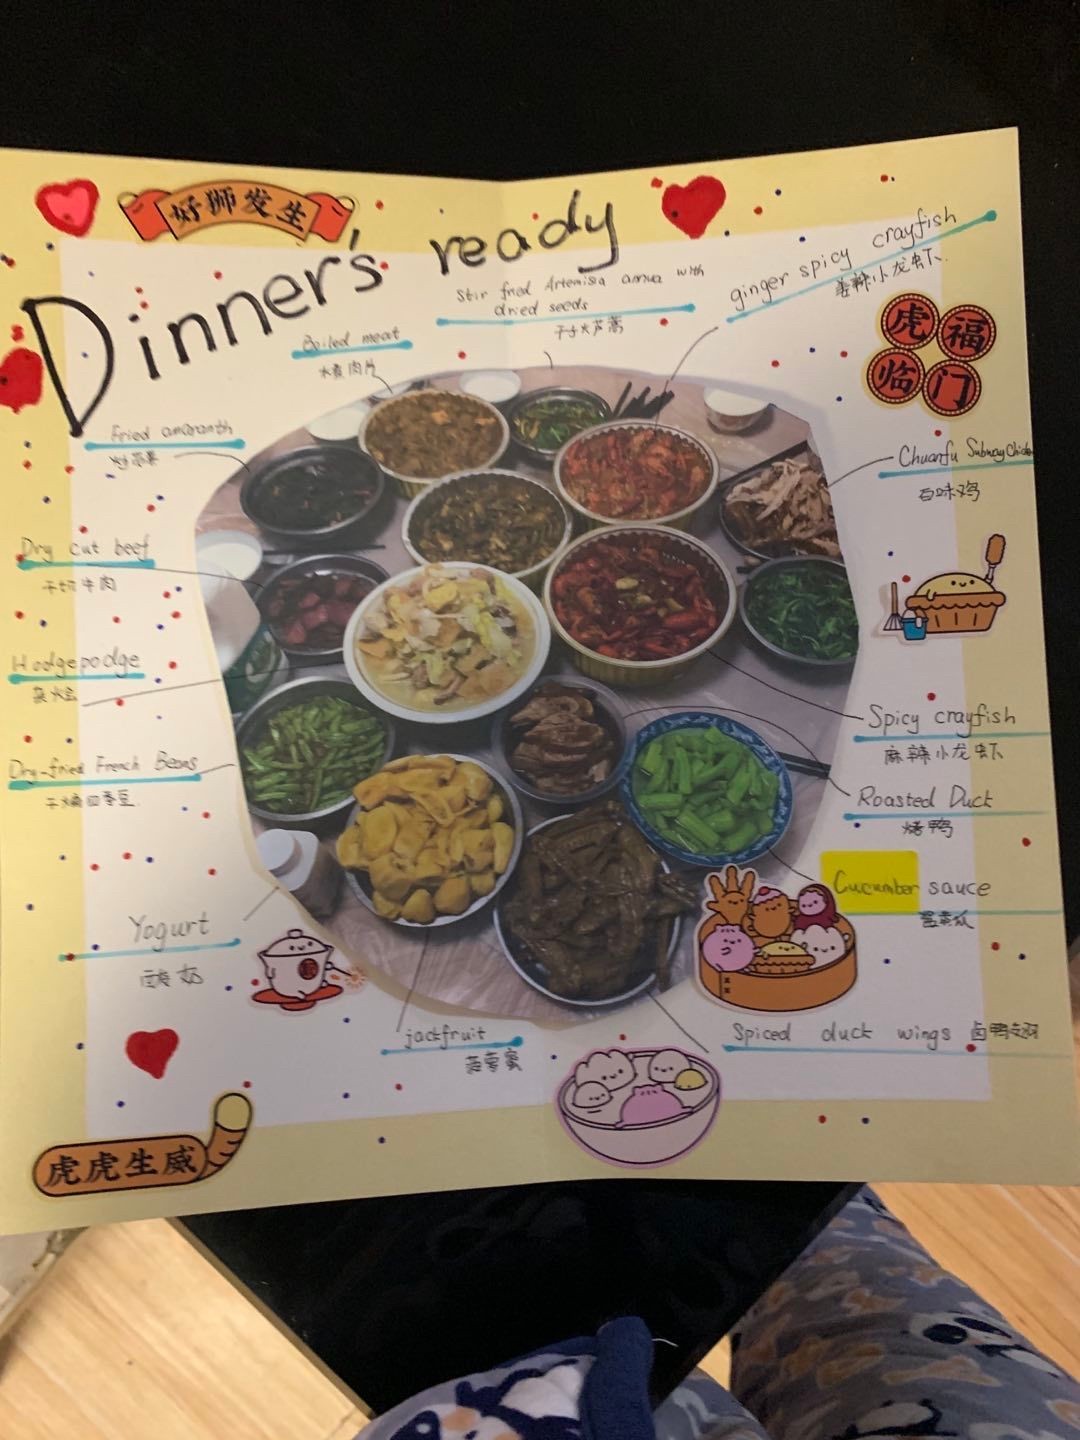 好狮发生
Dinner's ready
Stir fried Artemisia annua with
dried seeds
ginger spicy crayfish
姜辣小龙虾
Boiled meat
水煮肉片
虎福
临门
Fried amaranth
炒苋菜
Chuanfu Subway Chicken
百味鸡
Dry cut beef
干切牛肉
Hodgepodge
杂烩
Spicy crayfish
麻辣小龙虾
Dry-fried French Beans
干煸四季豆
Roasted Duck
烤鸭
Cucumber sauce
酱黄瓜
Yogurt
酸奶
jackfruit
菠萝蜜
Spiced duck wings 卤鸭翅
虎虎生威